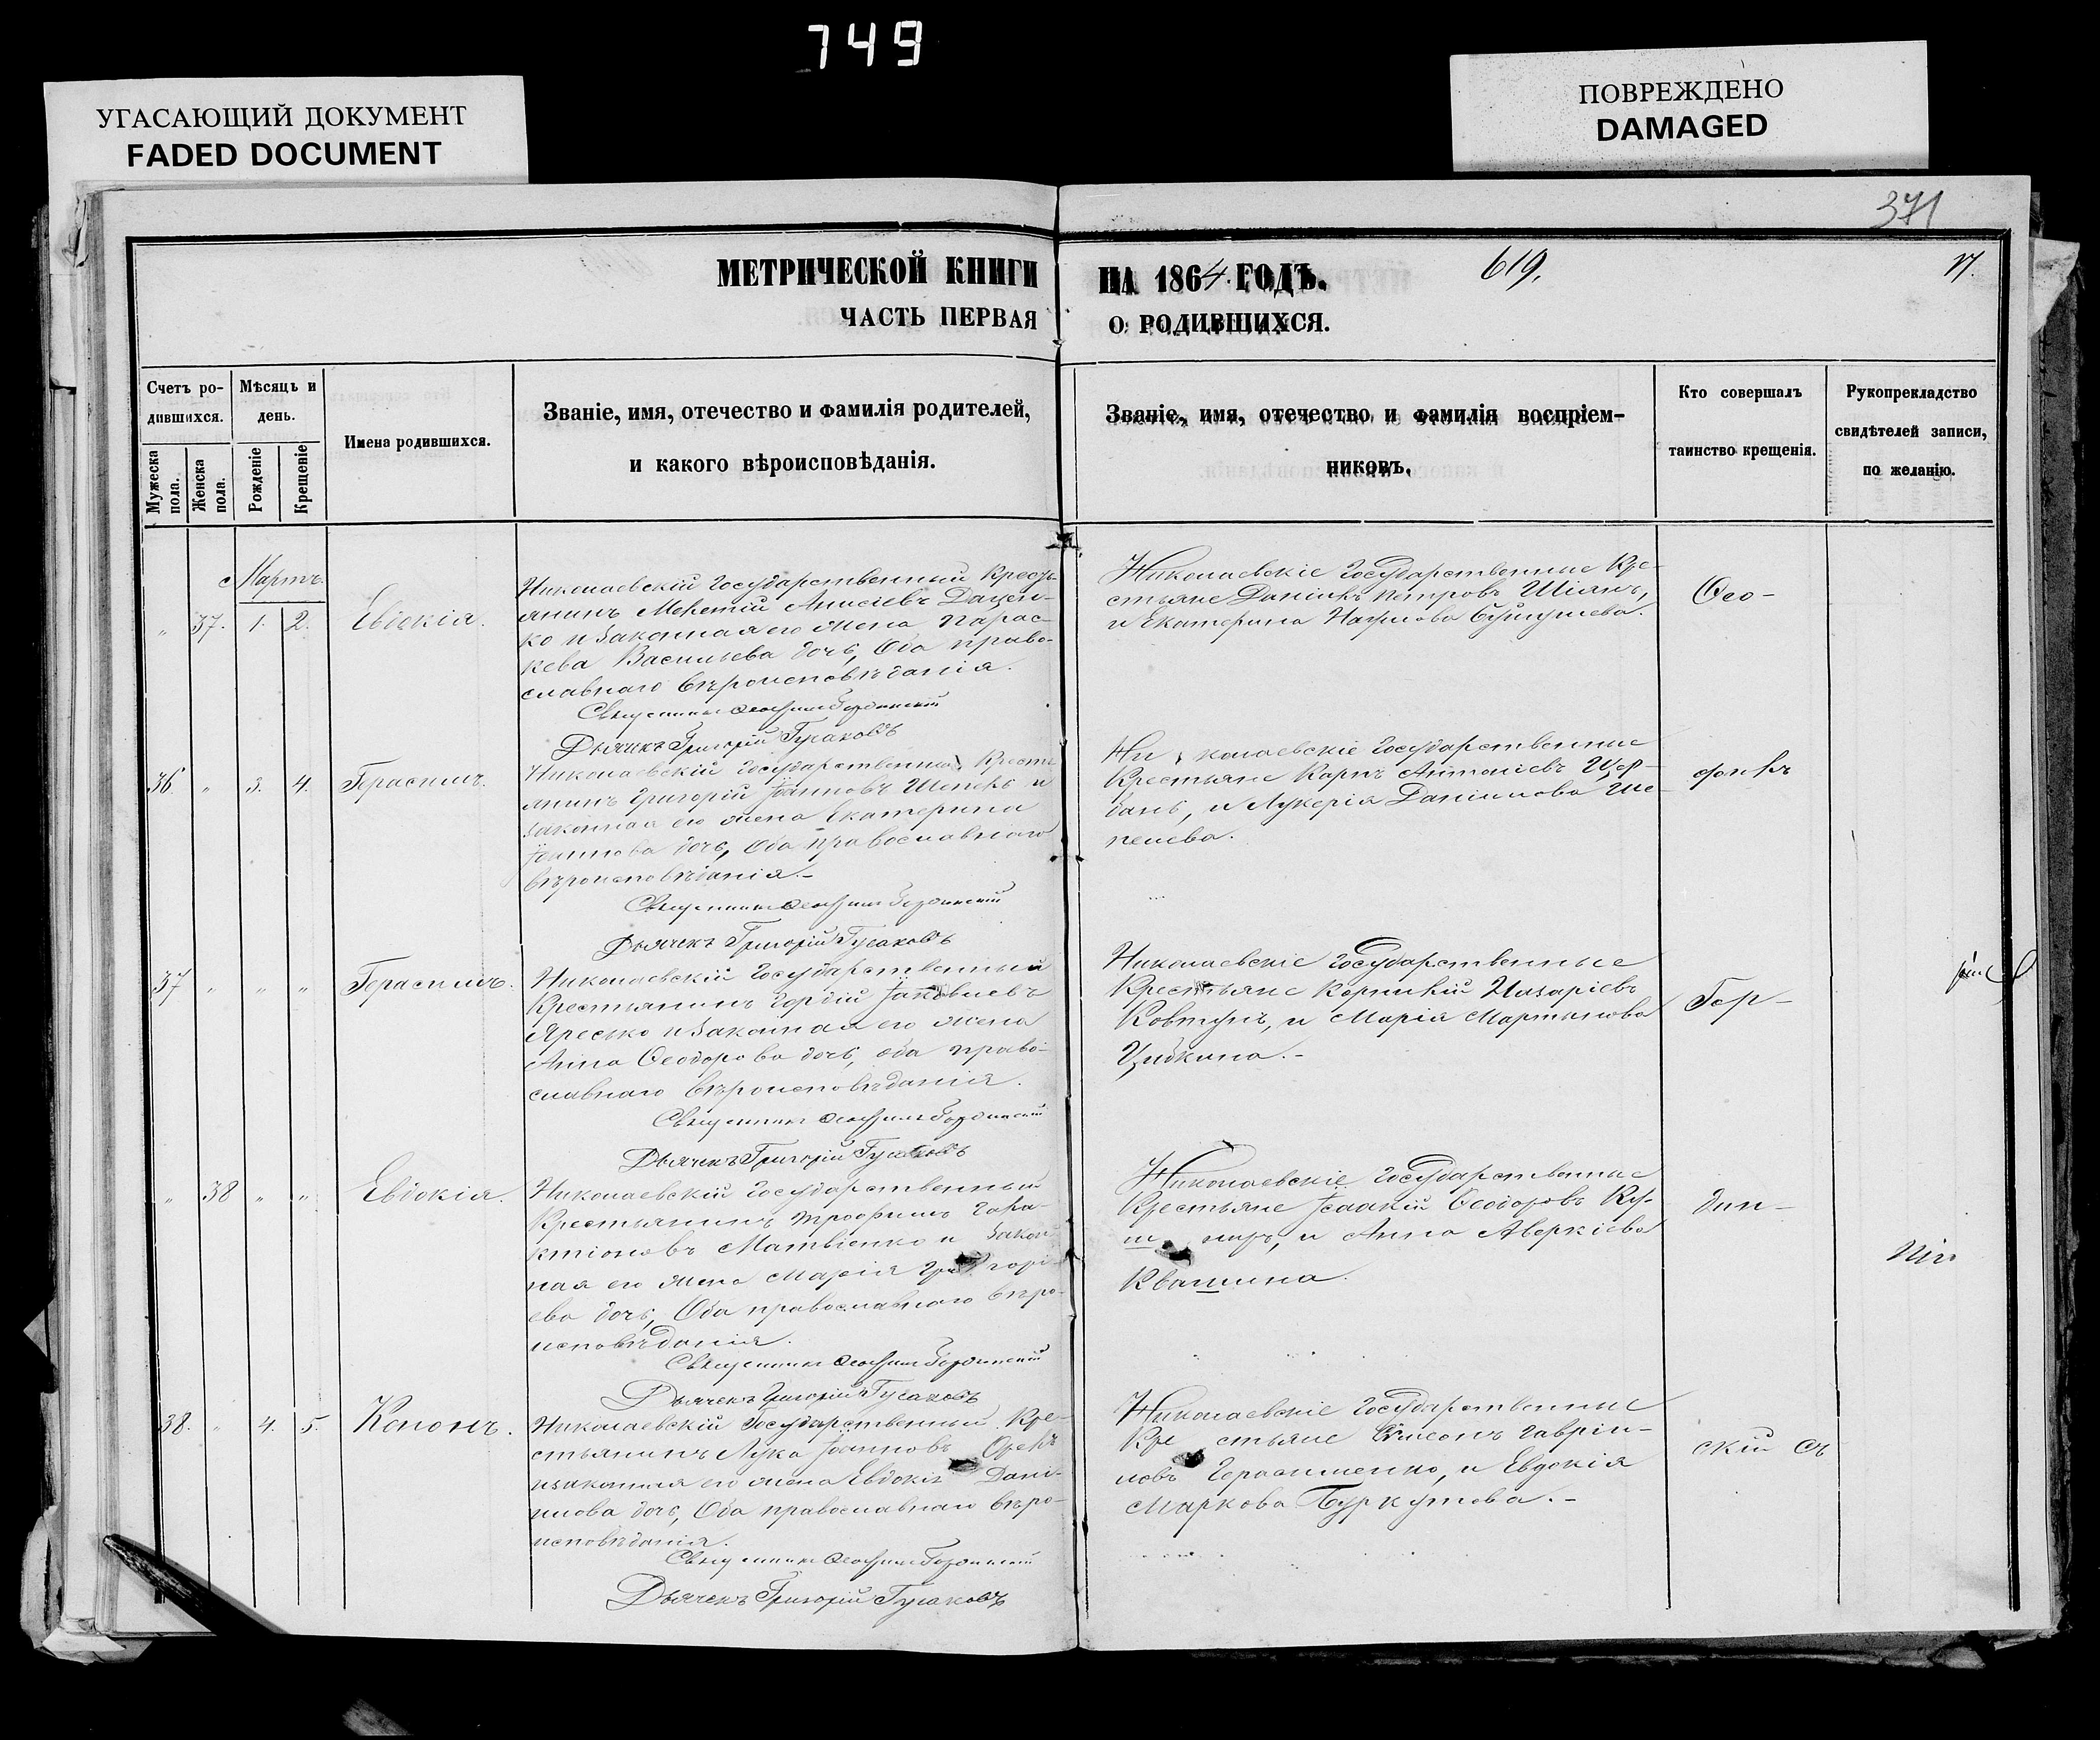 749
УГАСАЮЩИЙ ДОКУМЕНТ
FADED DOCUMENT
ПОВРЕЖДЕНО
DAMAGED
371
МЕТРИЧЕСКОЙ КНИГИ
ЧАСТЬ ПЕРВАЯ
НА 1864 ГОДЪ.
619.
О РОДИВШИХСЯ.
Счетъ ро-
дившихся.
Мужеска
пола.
Женска
пола.
Мѣсяцъ и
день.
Рожденіе
Крещеніе
Имена родившихся.
Званіе, имя, отечество и фамилія родителей,
и какого вѣроисповѣданія.
Званіе, имя, отечество и фамилія воспріем-
никовъ.
Кто совершалъ
таинство крещенія.
Рукоприкладство
свидѣтелей записи,
по желанію.
Мартъ.
" 37. 1. 2. Евдокія.
Николаевскій Государственный Кресть-
янинъ Анисіевъ Дацен-
ко и Законная его жена Парас-
кева Васильева дочь, Оба право-
славнаго вѣроисповѣданія.
Священникъ
Дьячекъ Григорій Гусаковъ
Николаевскіе Государственные Кре-
стьяне Даніилъ Петровъ Шіянъ,
и Екатерина Наумова
Ѳео-
36. " 3. 4. Герасимъ.
Николаевскій Государственный Кресть
янинъ Григорій Іоанновъ Шепель и
законная его жена Екатерина
Іоаннова дочь, Оба православнаго
вѣроисповѣданія.-
Священникъ
Дьячекъ Григорій Гусаковъ
Ни колаевскіе Государственные
Крестьяне Карпъ Антоніевъ Щер-
бань, и Лукерія Даніилова Ше-
пелева.
филъ
37 " " " Герасимъ.
Николаевскій Государственный
Крестьянинъ Гордій Іаковлевъ
Яресько и Законная его жена
Анна Ѳеодорова дочь, оба право-
славнаго вѣроисповѣданія.
Священникъ
Дьячекъ Григорій Гусаковъ
Николаевскіе Государственные
Крестьяне Корнилій Назаріевъ
Ковтунъ, и Марія Мартынова
Цибкина.-
Гор-
" 38 " " Евдокія.
Николаевскій Государственный
Крестьянинъ Трофимъ Гала-
ктіоновъ Матвіенко и Закон-
ная его жена Марія Григорі-
ева дочь, Оба православнаго вѣро-
исповѣданія.
Священникъ
Дьячекъ Григорій Гусаковъ
Николаевскіе Государственные
Крестьяне Исаакій Ѳеодоровъ Ку-
ш ниръ, и Анна Аверкіева
Квашина.
дин-
38. " 4. 5. Кононъ.
Николаевскій Государственный Кре-
стьянинъ Лука Іоанновъ Орелъ
и законная его жена Евдокія Дані-
илова дочь, Оба православнаго вѣро-
исповѣданія.
Священникъ
Дьячекъ Григорій Гусаковъ
Николаевскіе Государственные
Кре стьяне Симеонъ Гавріи-
ловъ Герасименко, и Евдокія
Маркова Буркутова.-
скій съ